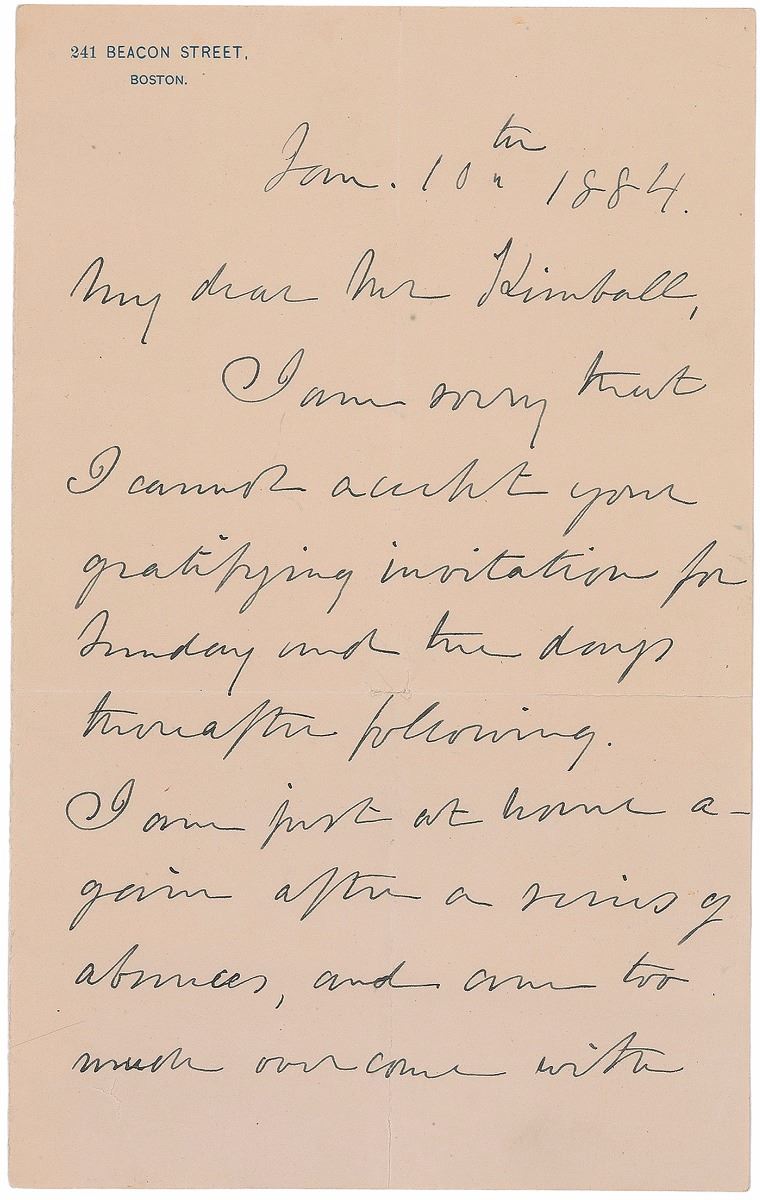 241 BEACON STREET,
BOSTON.
Jan. 10th 1884.
My dear Mr Kimball,
I am sorry that
I cannot accept your
gratifying invitation for
Sunday and the days
thereafter following.
I am just at home a-
gain after a series of
absences, and am too
much overcome with